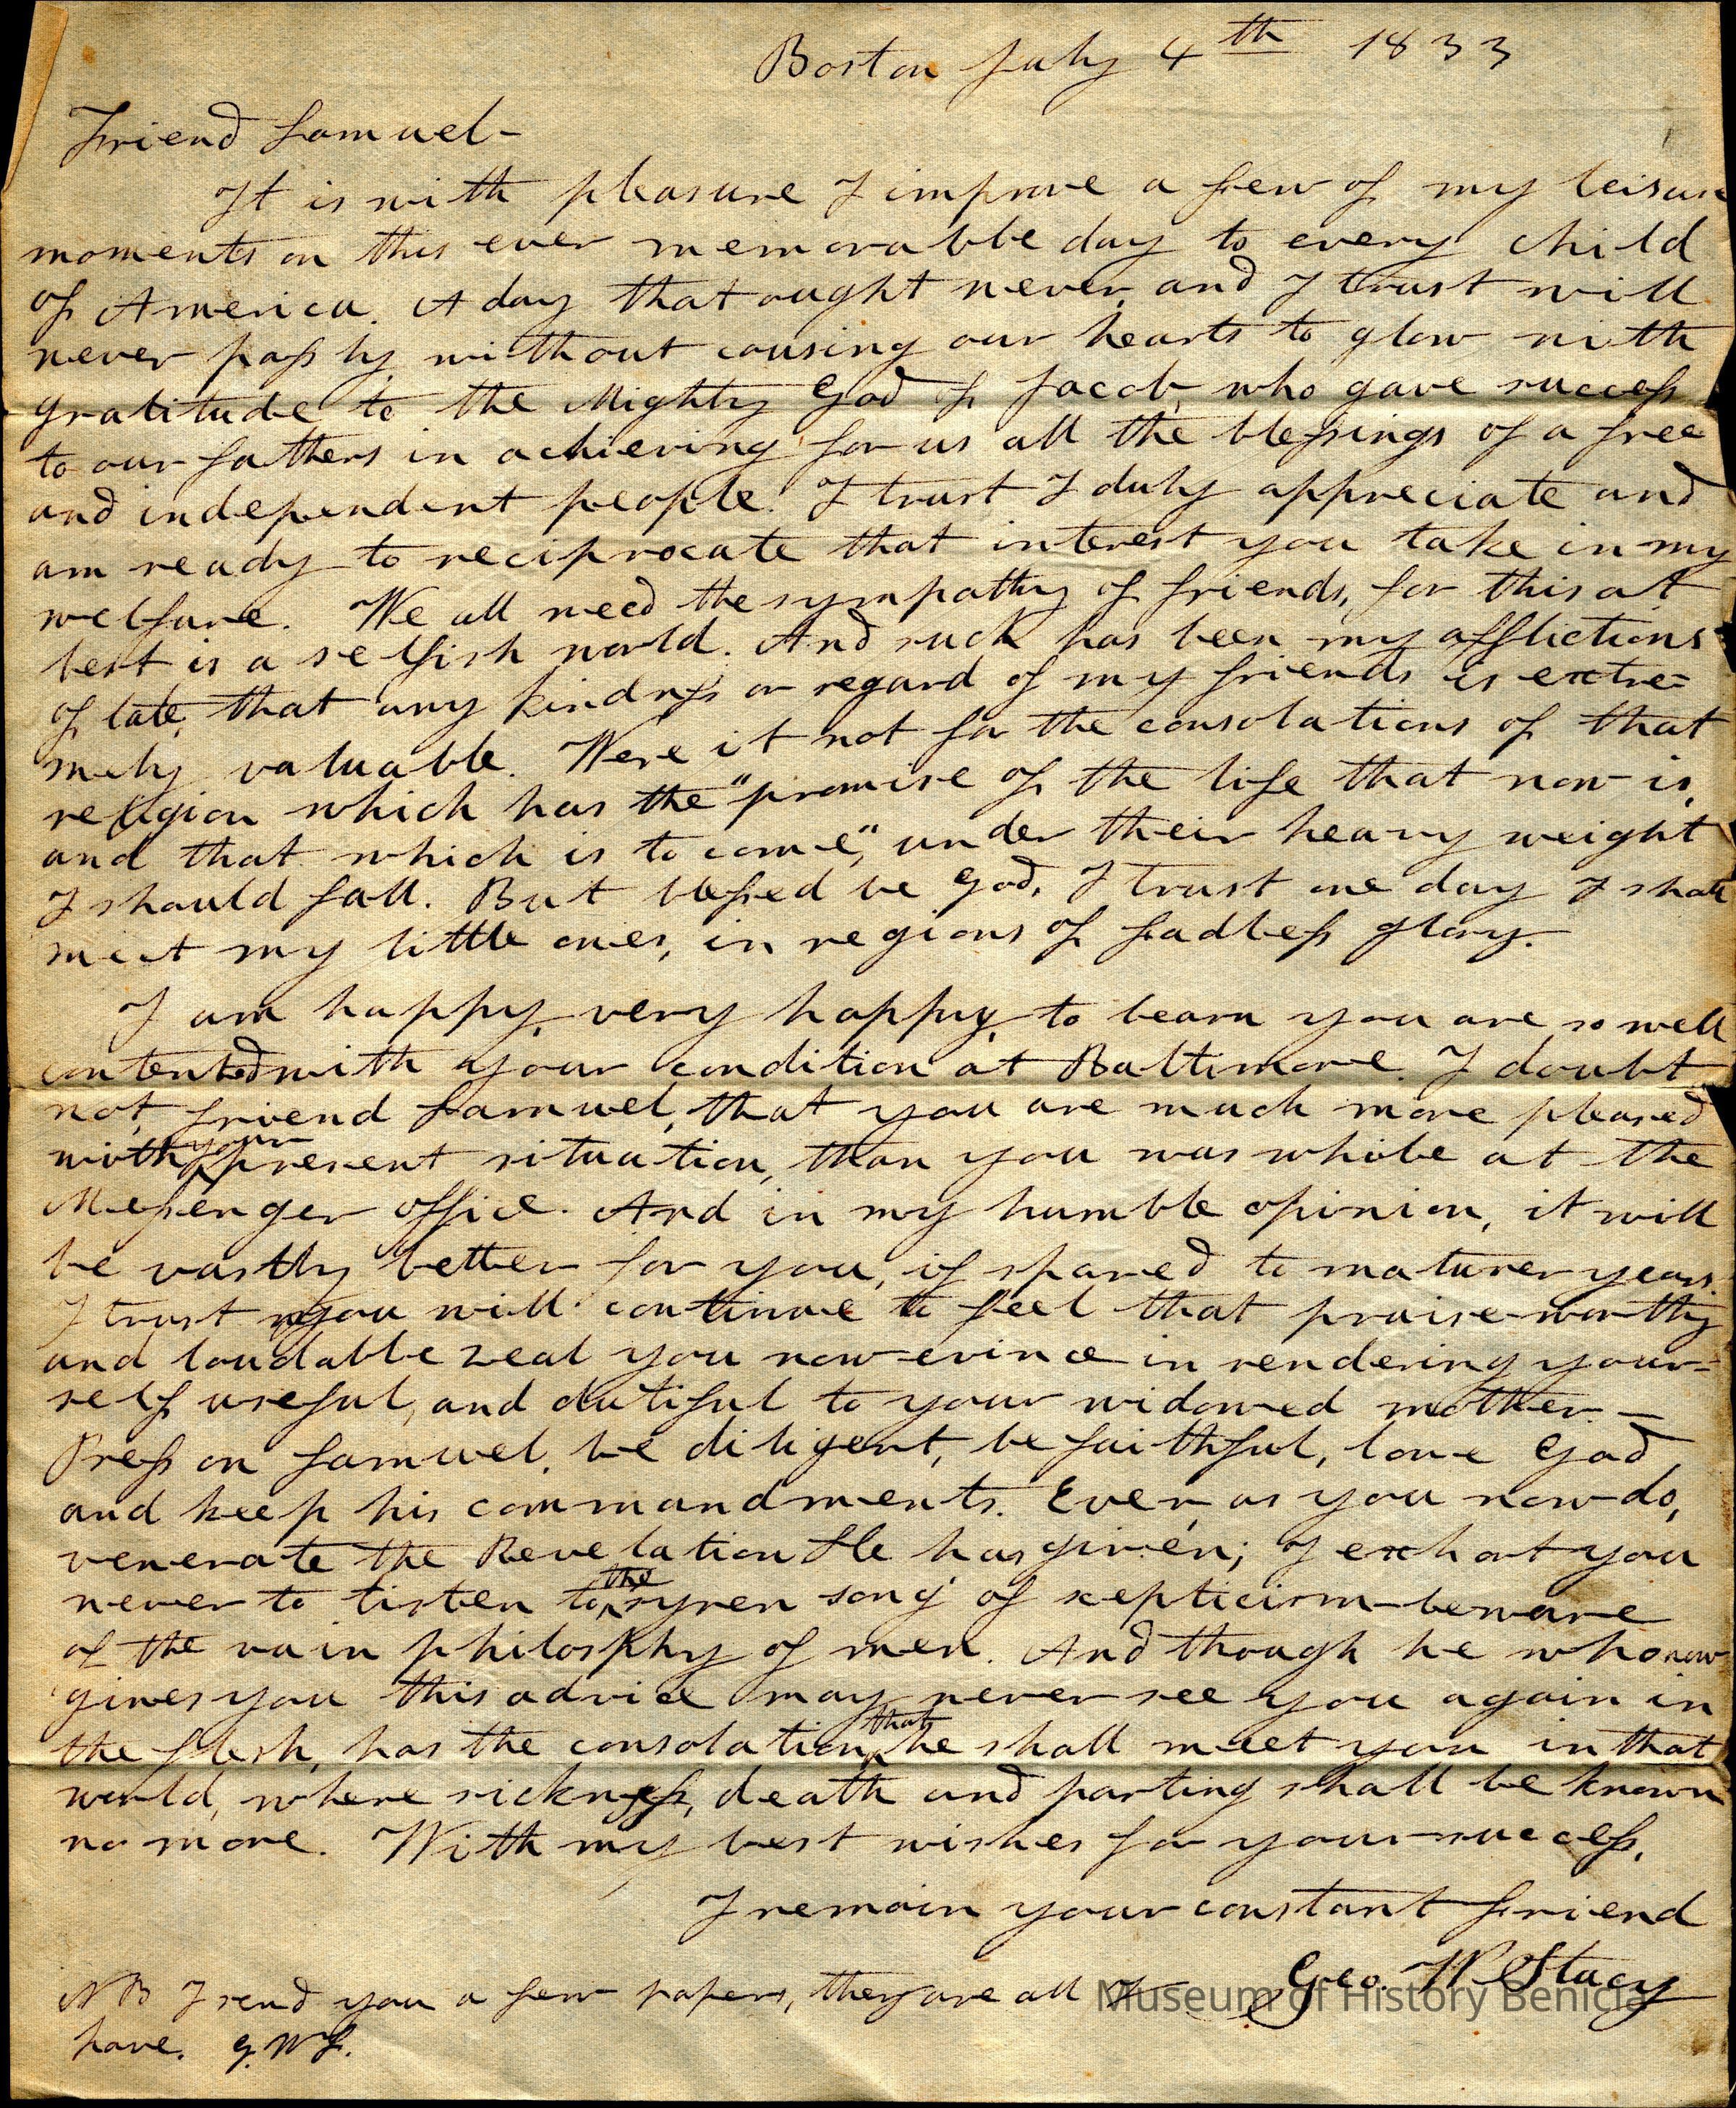 Boston July 4th 1833
Friend Samuel-
It is with pleasure I improve a few of my leisure
moments on this ever memorable day to every child
of America. A day that ought never, and I trust will
never pass by without causing our hearts to glow with
gratitude to the Mighty God of Jacob, who gave success
to our fathers in achieving for us all the blessings of a free
and independent people. I trust I duly appreciate and
am ready to reciprocate that interest you take in my
welfare. We all need the sympathy of friends, for this at
best is a selfish world. And such has been my afflictions
of late, that any kindness or regard of my friends is extre=
mely valuable. Were it not for the consolations of that
religion which has the "promise of the life that now is,
and that which is to come", under their heavy weight
I should fall. But blessed be God, I trust one day I shall
meet my little ones, in regions of fadless glory.
I am happy, very happy, to learn you are so well
contented with your condition at Baltimore. I doubt
not, friend Samuel, that you are much more pleased
with your present situation, than you was while at the
Messenger office. And in my humble opinion, it will
be vastly better for you, if spared to maturer years.
I trust you will continue to feel that praise-worthy
and laudable zeal you now evince in rendering your=
self useful, and dutiful to your widowed mother. -
Press on Samuel, be diligent, be faithful, love God,
and keep his commandments. Ever, as you now do,
venerate the Revelation He has given; I exhort you
never to listen to the syren song of scepticism - beware
of the vain philosphy of men. And though he who now
gives you this advice may never see you again in
the flesh, has the consolation, that he shall meet you in that
world, where sickness, death and parting shall be known
no more. With my best wishes for your success,
I remain your constant friend
Geo. W. Stacy
NB I send you a few papers, they are all I
have. G.W.S.
Museum of History Benicia